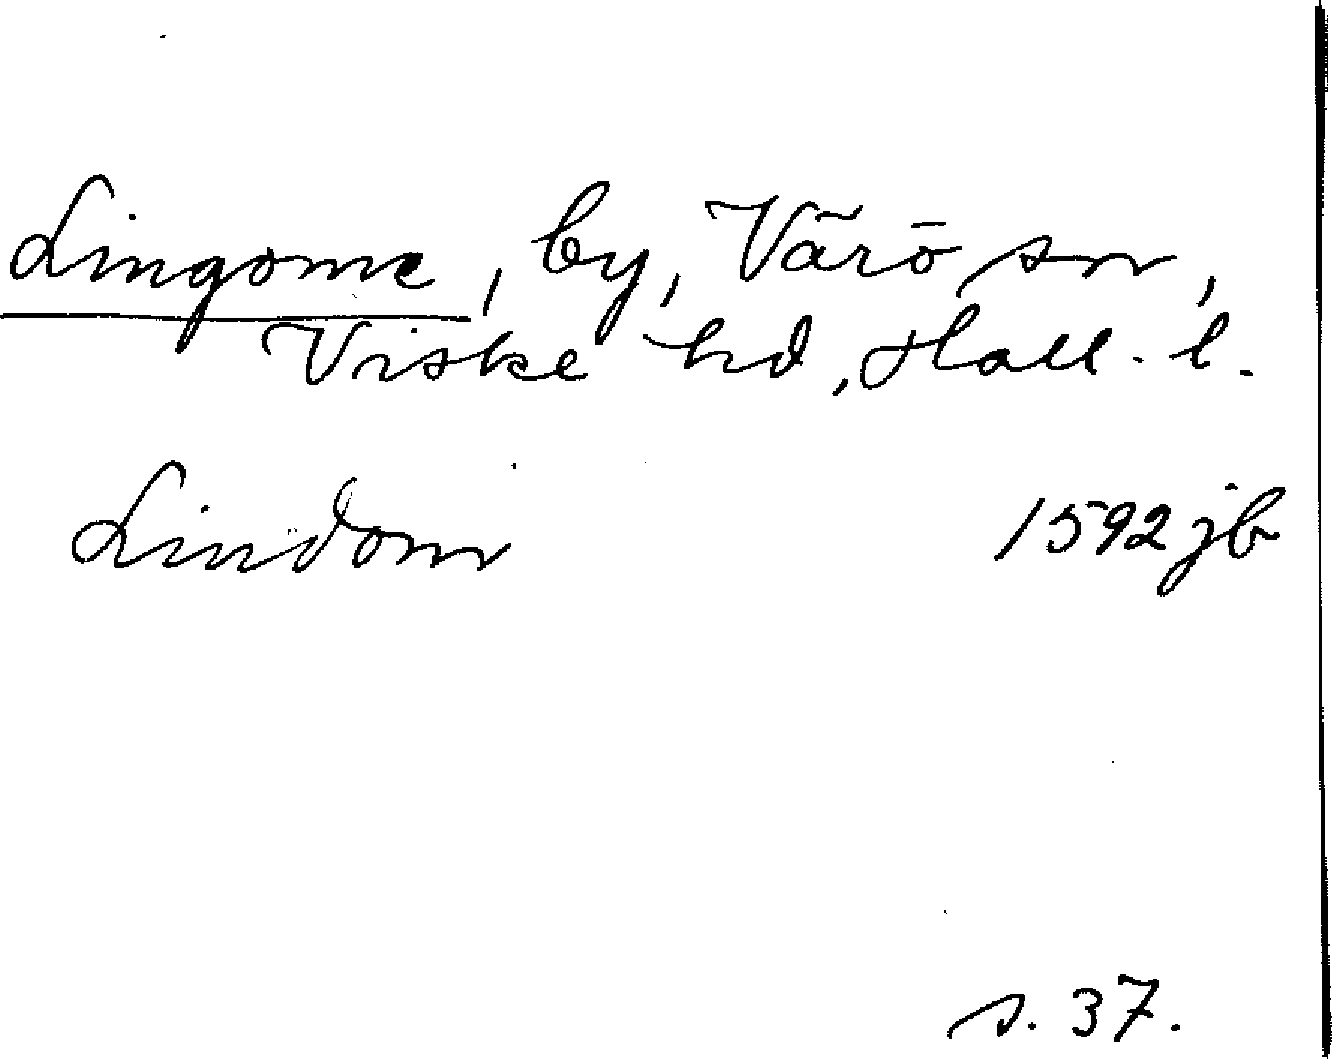 Lingome, by, Värö sn,
Viske hd, Hall. l.
Lindom 1592 jb
s. 37.